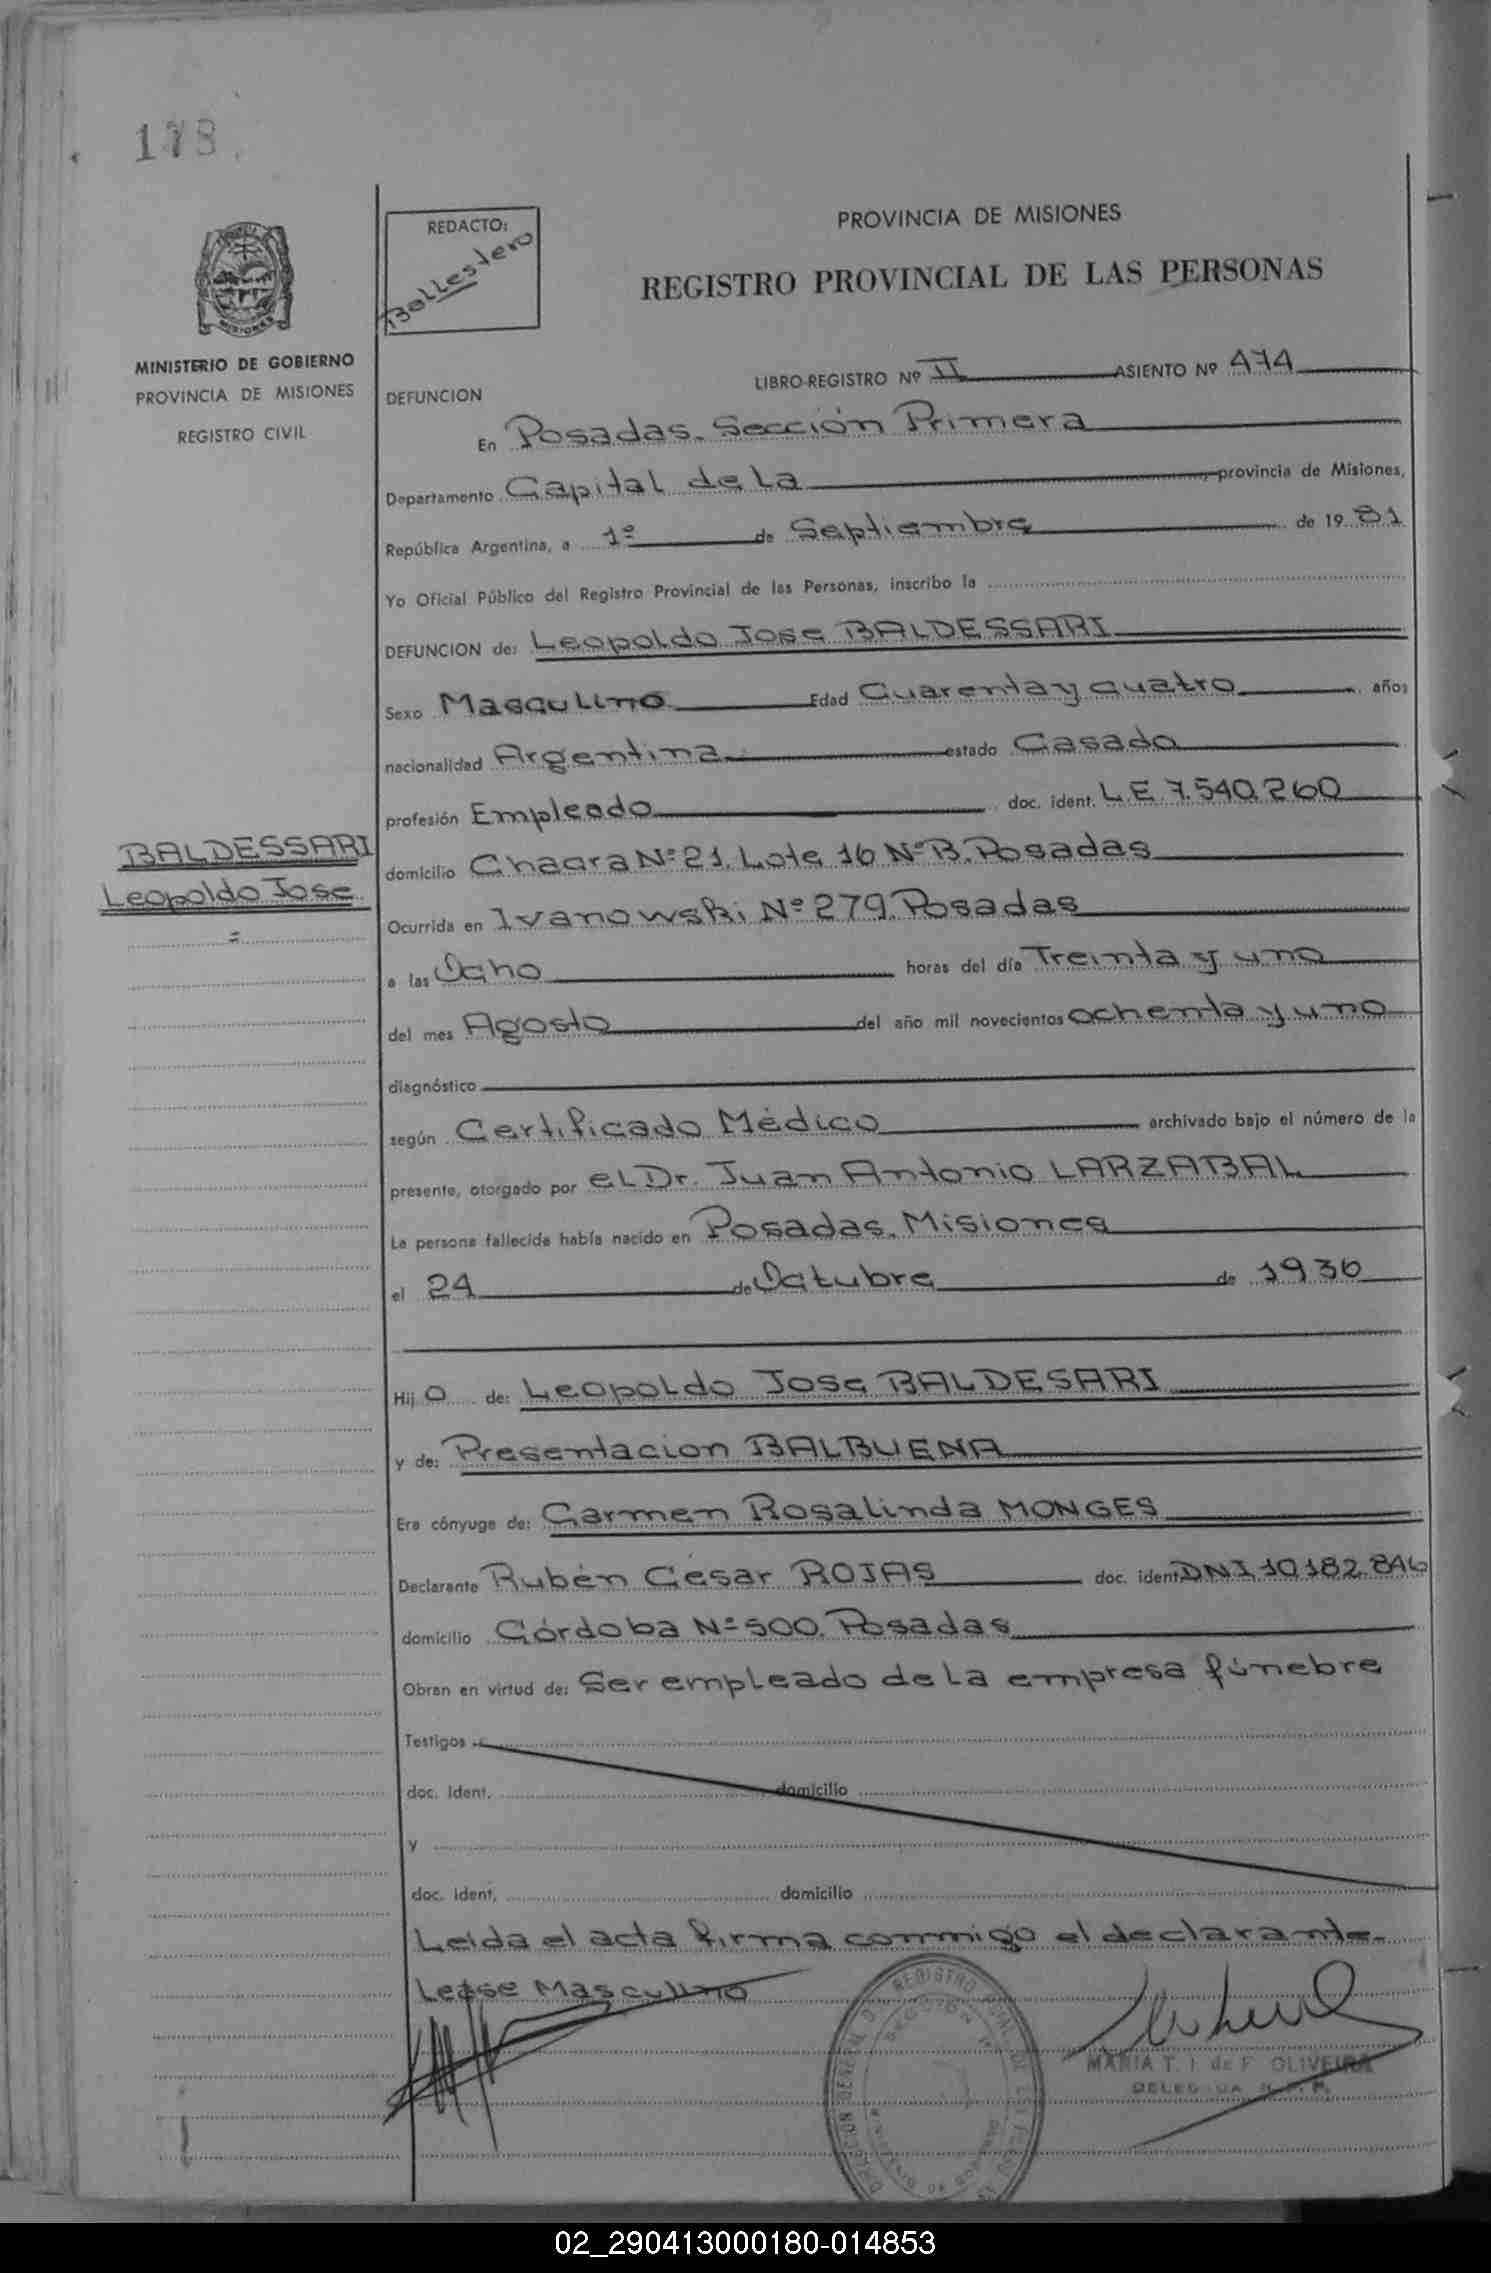 178
REDACTO:
Ballestero
PROVINCIA DE MISIONES
REGISTRO PROVINCIAL DE LAS PERSONAS
MISIONES
MINISTERIO DE GOBIERNO
PROVINCIA DE MISIONES
REGISTRO CIVIL
LIBRO-REGISTRO Nº II ASIENTO Nº 474
DEFUNCION
En Posadas. Sección Primera
Departamento Capital de La provincia de Misiones,
República Argentina, a 1º de Septiembre de 19 81
Yo Oficial Público del Registro Provincial de las Personas, inscribo la
DEFUNCION de: Leopoldo Jose BALDESSARI
Sexo Masculino Edad Cuarenta y cuatro años
nacionalidad Argentina estado Casado
profesión Empleado doc. ident. L.E 7.540.260
BALDESSARI
Leopoldo Jose
domicilio Chacra Nº 21. Lote 16 Nº B. Posadas
Ocurrida en Ivanowski Nº 279. Posadas
a las Ocho horas del día Treinta y uno
del mes Agosto del año mil novecientos ochenta y uno
diagnóstico
según Certificado Médico archivado bajo el número de la
presente, otorgado por el Dr. Juan Antonio LARZABAL
La persona fallecida había nacido en Posadas. Misiones
el 24 de Octubre de 1936
Hij o de: Leopoldo Jose BALDESARI
y de: Presentacion BALBUENA
Era cónyuge de: Carmen Rosalinda MONGES
Declarante Rubén César ROJAS doc. ident. DNI.10.182.846
domicilio Córdoba Nº 500. Posadas
Obran en virtud de: Ser empleado de la empresa fúnebre
Testigos
doc. ident. domicilio
y
doc. ident. domicilio
Leída el acta firma conmigo el declarante.
Lease Masculino
MARIA T. I. de F. OLIVEIRA
02_290413000180-014853